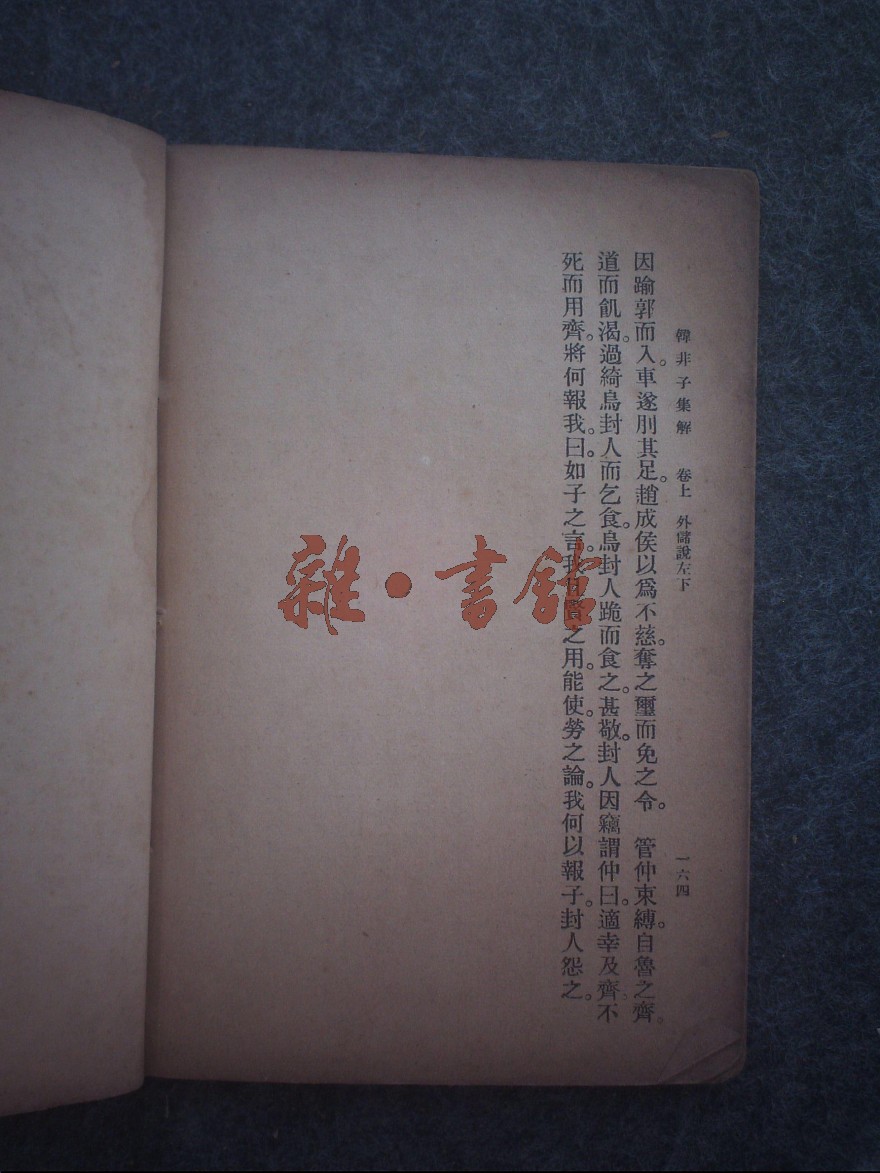 韓非子集解　卷上　外儲說左下　一六四
因踰郭而入。車遂刖其足。趙成侯以爲不慈。奪之璽而免之令。　管仲束縛。自魯之齊。
道而飢渴。過綺烏封人而乞食。烏封人跪而食之。甚敬。封人因竊謂仲曰。適幸及齊不
死而用齊。將何報我。曰。如子之言。我且賢之用。能使。勞之論。我何以報子。封人怨之。
雜·書館